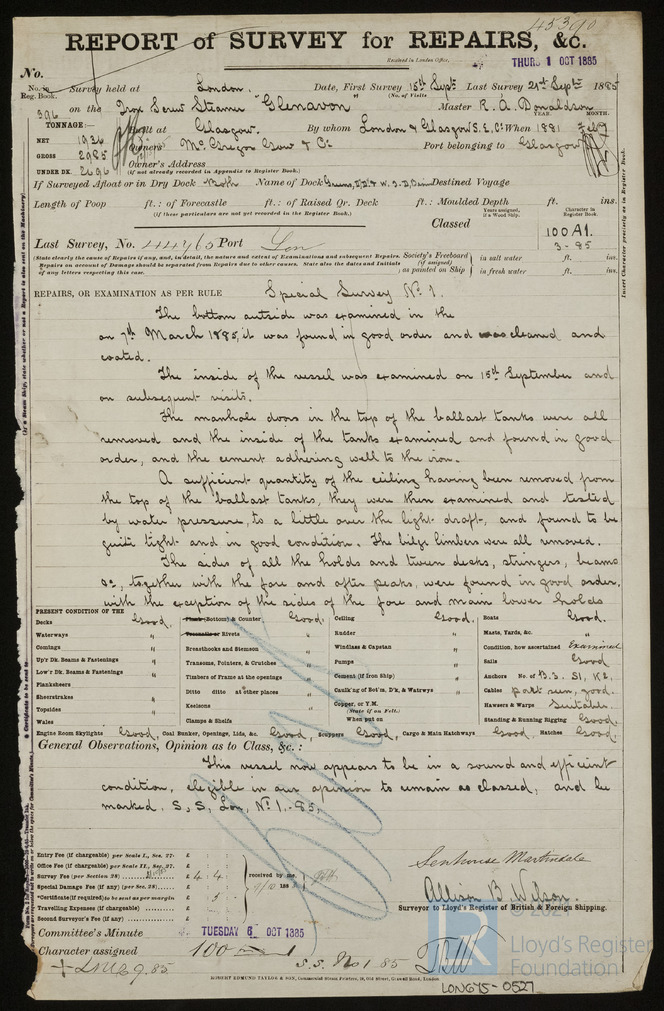 45390
REPORT of SURVEY for REPAIRS, &c.
Received in London Office,
THURS 1 OCT 1885
No.
No. in Reg. Book. Survey held at London. Date, First Survey 15th Sept. Last Survey 21st Sept. 1885
(No. of Visits)
396 on the Iron Screw Steamer "Glenavon" Master R. A. Donaldson
TONNAGE:— YEAR. MONTH.
NET 1936 Built at Glasgow. By whom London & Glasgow S. E. Co When 1881
GROSS 2985 Owners McGregor Gow & Co Port belonging to Glasgow
UNDER DK. 2696 Owner's Address
(if not already recorded in Appendix to Register Book.)
If Surveyed Afloat or in Dry Dock Both Name of Dock Destined Voyage
Length of Poop ft.: of Forecastle ft.: of Raised Qr. Deck ft.: Moulded Depth ft. ins.
(If these particulars are not yet recorded in the Register Book.)
Years assigned, if a Wood Ship.
Character in Register Book.
Classed 100 A1.
3 - 85
Last Survey, No. 44460 Port Lon
(State clearly the cause of Repairs if any, and, in detail, the nature and extent of Examinations and subsequent Repairs.
Repairs on account of Damage should be separated from Repairs due to other causes. State also the dates and Initials
of any letters respecting this case.
Society's Freeboard (if assigned) as painted on Ship
in salt water ft. ins.
in fresh water ft. ins.
REPAIRS, OR EXAMINATION AS PER RULE Special Survey No. 1.
The bottom outside was examined in the
on 7th March 1885, it was found in good order and was cleaned and
coated.
The inside of the vessel was examined on 15th September and
on subsequent visits.
The manhole doors in the top of the ballast tanks were all
removed and the inside of the tanks examined and found in good
order, and the cement adhering well to the iron.
A sufficient quantity of the ceiling having been removed from
the top of the ballast tanks, they were then examined and tested
by water pressure, to a little over the light draft, and found to be
quite tight and in good condition. The bilge limbers were all removed.
The sides of all the holds and tween decks, stringers, beams
&c, together with the fore and after peaks, were found in good order,
with the exception of the sides of the fore and main lower holds
PRESENT CONDITION OF THE
Decks Good. Plank (Bottom) & Counter Good. Ceiling Good. Boats Good.
Waterways " Treenails or Rivets " Rudder " Masts, Yards, &c. "
Comings " Breasthooks and Stemson Windlass & Capstan " Condition, how ascertained Examined
Up'r Dk. Beams & Fastenings " Transoms, Pointers, & Crutches " Pumps " Sails Good
Low'r Dk. Beams & Fastenings " Timbers of Frame at the openings Cement (if Iron Ship) " Anchors No. of B. 3. S1, K2.
Planksheers Ditto ditto at other places Caulk'ng of Bot'm, D'k, & Waterwys " Cables part seen, good.
Sheerstrakes " Keelsons " Copper, or Y.M. Hawsers & Warps Suitable.
(State if on Felt.)
Topsides " Clamps & Shelfs When put on Standing & Running Rigging Good.
Wales
Engine Room Skylights Good. Coal Bunker, Openings, Lids, &c. Good. Scuppers Good. Cargo & Main Hatchways Good. Hatches Good.
General Observations, Opinion as to Class, &c. :
This vessel now appears to be in a sound and efficient
condition, eligible in our opinion to remain as classed, and be
marked, S, S, Lon, No 1.-85.
Entry Fee (if chargeable) per Scale I., Sec. 27. £
Office Fee (if chargeable) per Scale II., Sec. 27. £
Survey Fee (per Section 28) £ 4 : 4 received by me,
Special Damage Fee (if any) (per Sec. 28) £
*Certificate (if required) to be sent as per margin £
Travelling Expenses (if chargeable) £
Second Surveyor's Fee (if any) £
Senhouse Martindale
Allison B. Wilson.
Surveyor to Lloyd's Register of British & Foreign Shipping.
Committee's Minute TUESDAY 6 OCT 1885
Character assigned 100 A 1
+ LMC 9.85 S.S. No 1 85
ROBERT EDMUND TAYLOR & SON, Commercial Steam Printers, 19, Old Street, Goswell Road, London.
LR
Lloyd's Register
Foundation
LON675-0527